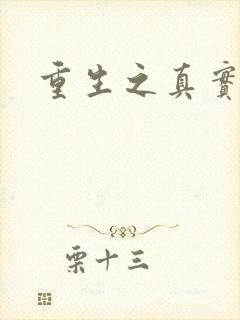 重生之真實
栗十三